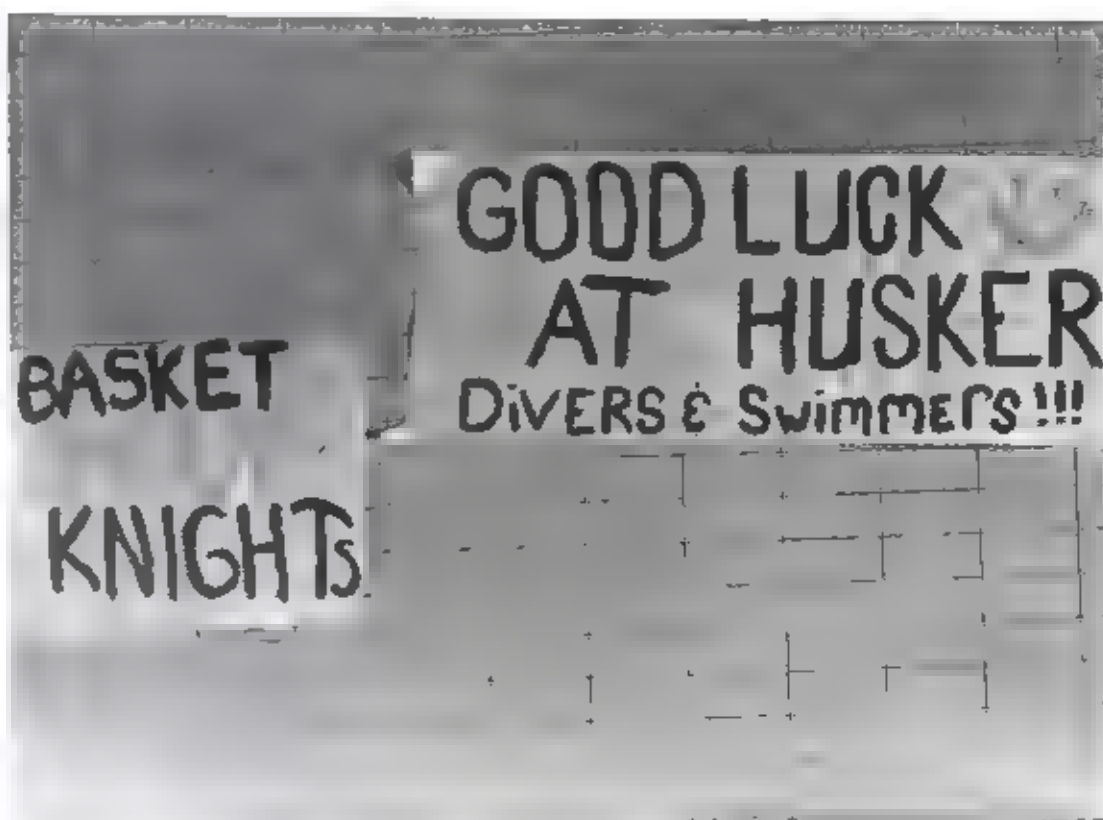 GOOD LUCK
AT HUSKER
DiVERS & Swimmers!!!
BASKET
KNIGHTs